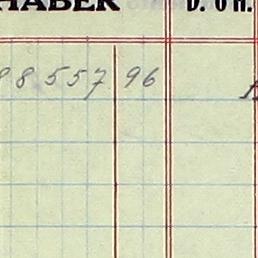 HABER D. o H.
88557 96